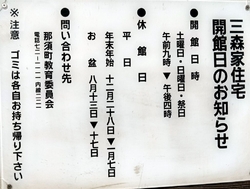 三森家住宅
開館日のお知らせ
●開館日時
土曜日・日曜日・祭日
午前九時▼午後四時
●休館日
平日
年末年始 十二月二十八日▼一月七日
お盆 八月十三日▼十七日
●問い合わせ先
那須町教育委員会
電話七二-
※注意 ゴミは各自お持ち帰り下さい